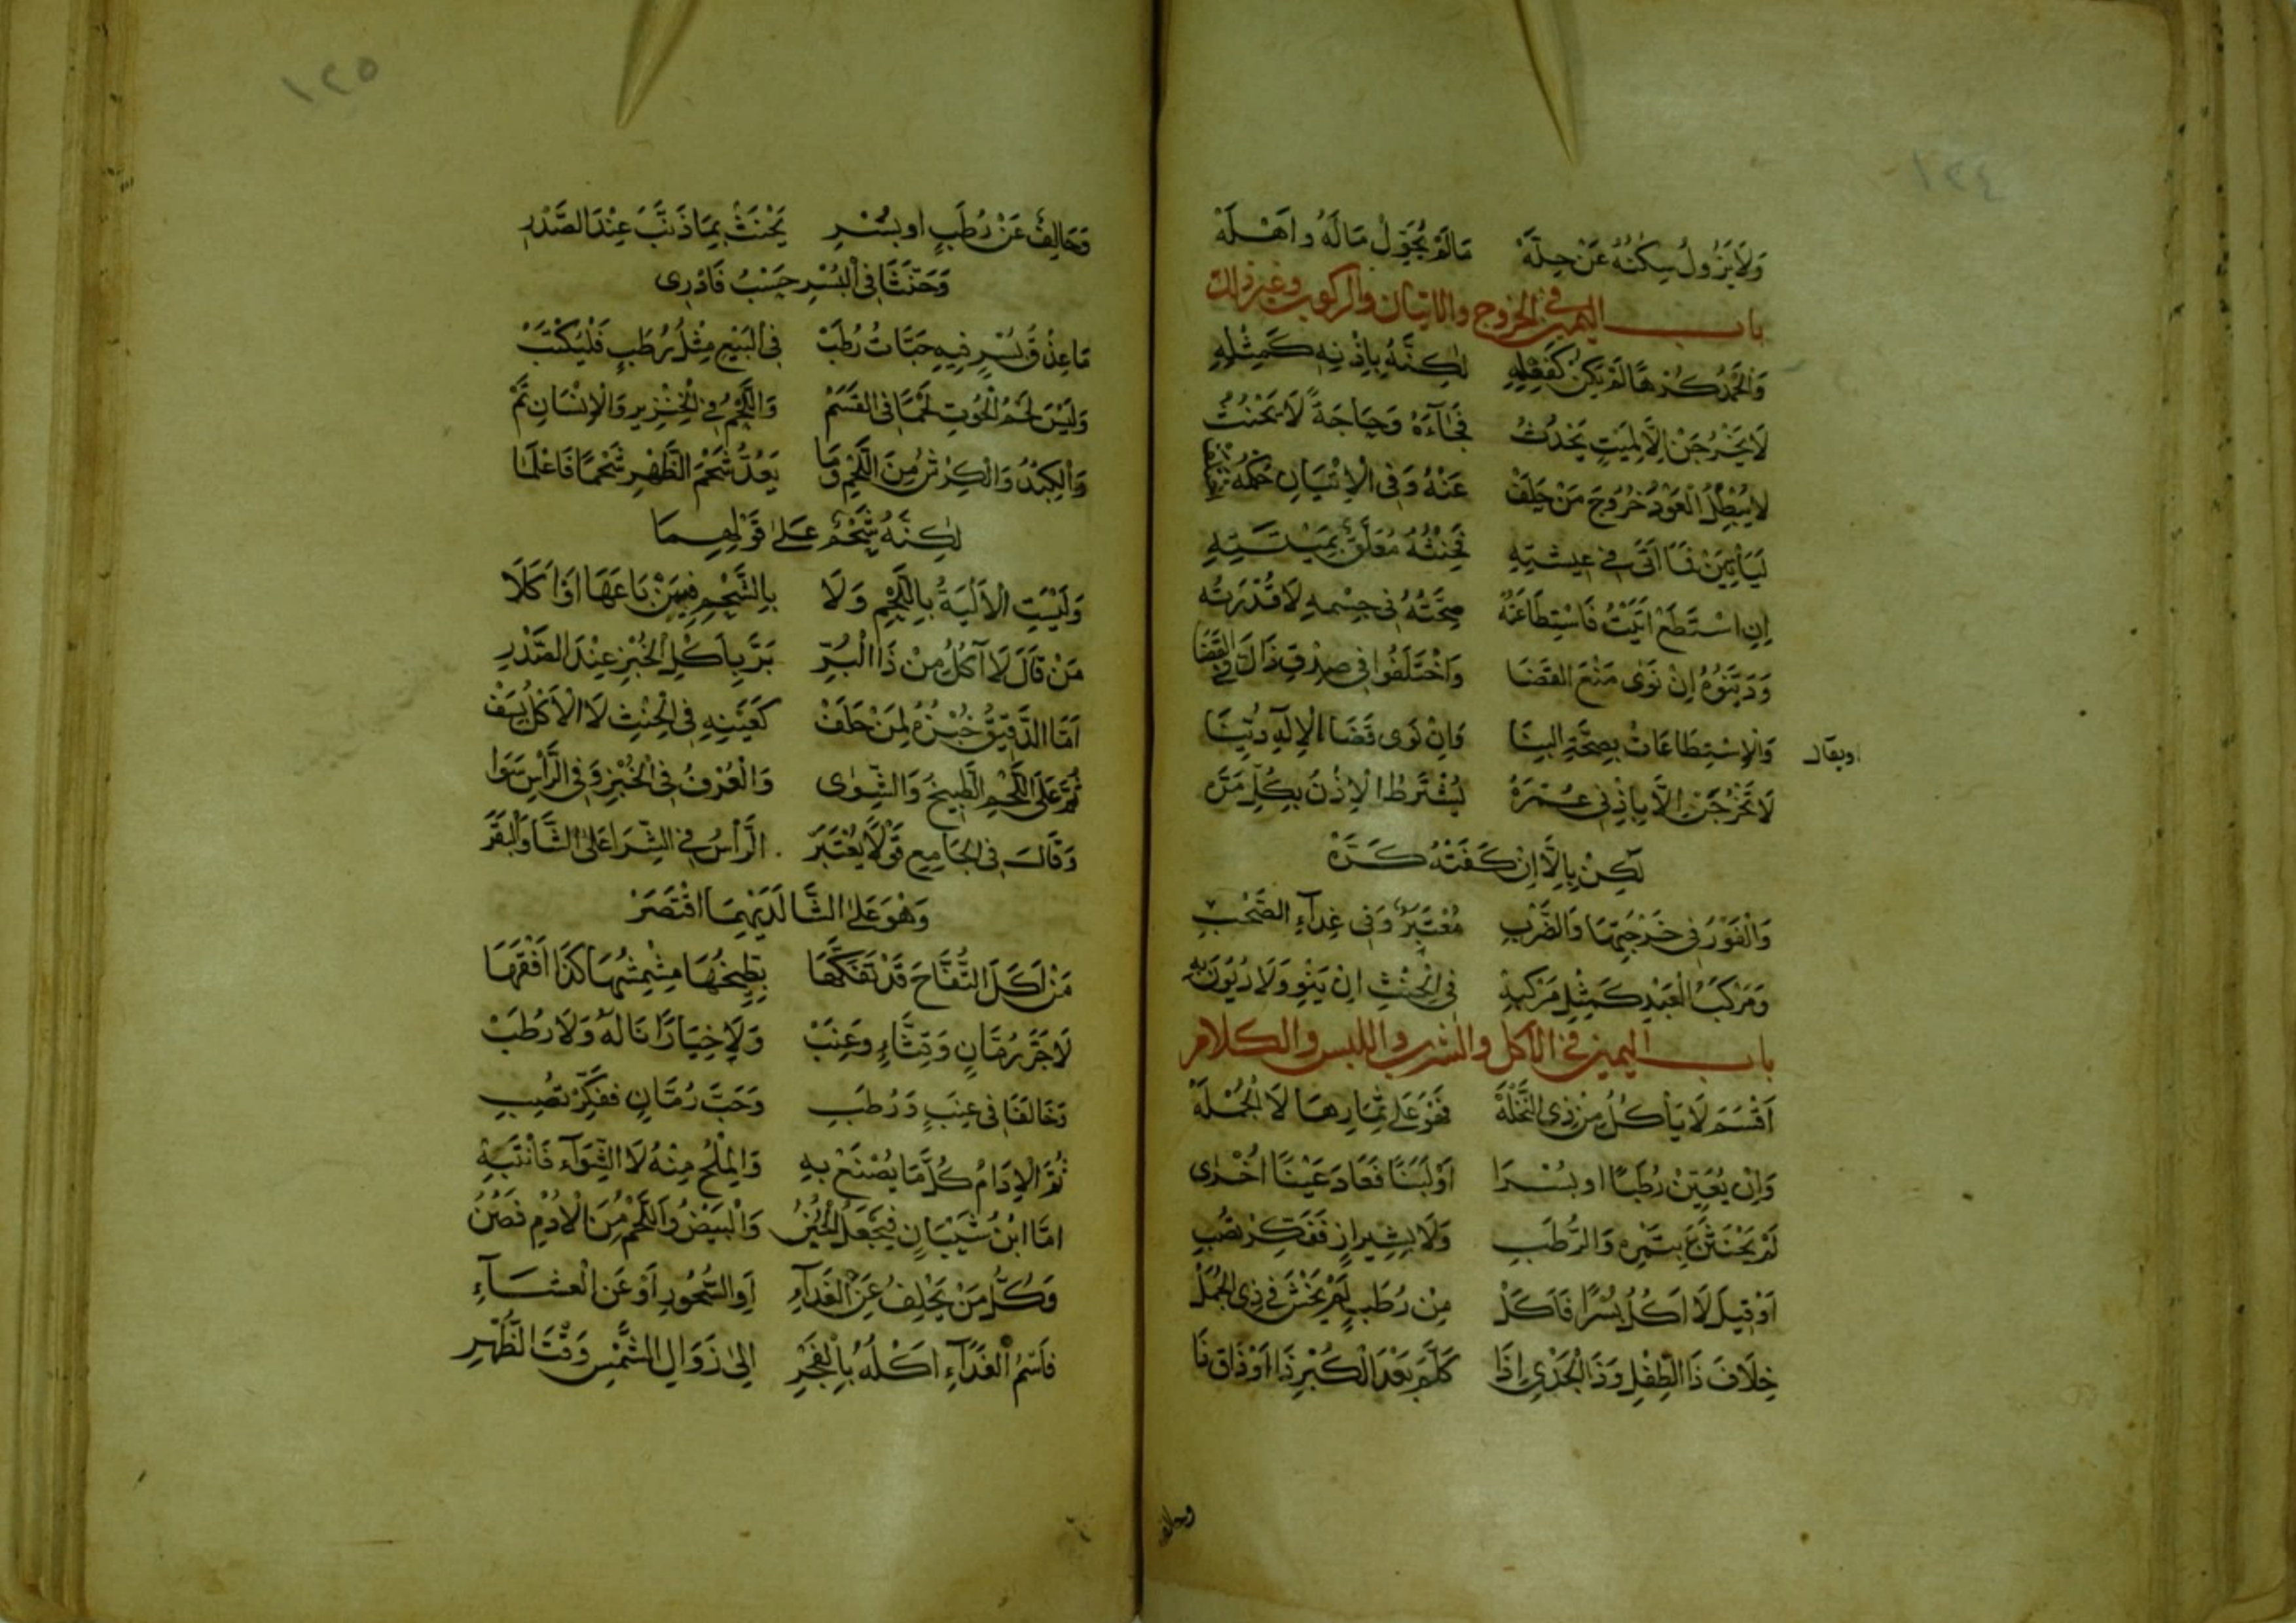 ١٢٤
وَلَا يَزُولُ سِكَنُهُ عَنْ حِلَّهْ مَا لَمْ يُحَوِّلْ مَالَهُ وَاَهْلَهْ
باب اليمين في الخروج والاتيان والركوب وغير ذلك
وَالْحَمْلُ كُرْهًا لَمْ يَكُنْ كَفِعْلِهِ لٰكِنَّهُ بِاِذْنِهِ كَمِثْلِهِ
لَا يَخْرُجَنْ اِلَّا لِمَيْتٍ يَحْدُثُ فَجَآءَهُ وَحَاجَةً لَا يَحْنَثُ
لَا يُبْطِلُ الْعَوْدُ خُرُوجَ مَنْ حَلَفْ عَنْهُ وَفِى الْاِتْيَانِ حُكْمُهُ
لَيَأْتِيَنْ فَمَا اَتَى فِى عِيشَتِهِ فَحِنْثُهُ مُعَلَّقٌ بِمِيتَتِهِ
اِنِ اسْتَطَعْ اَتَيْتُ فَاسْتِطَاعَتُهْ صِحَّتُهُ فِى جِسْمِهِ لَا قُدْرَتُهْ
وَدَيَّنُوهُ اِنْ نَوٰى مَنْعَ الْقَضَا وَاخْتَلَفُوا فِى صِدْقِ ذَاكَ فِى الْقَضَا
وَالْاِسْتِطَاعَاتُ بِصِحَّةِ الْبِنَا وَاِنْ نَوٰى قَضَا الْاِلٰهِ دُيِّنَا
ويقال
لَا تَخْرُجَنْ اِلَّا بِاِذْنِى عُمْرَهْ يُشْتَرَطُ الْاِذْنُ بِكُلِّ مَرَّهْ
لٰكِنْ بِاِلَّا اِنْ كَفَتْهُ كَرَّهْ
وَالْفَوْرُ فِى خَرْجَتِهَا وَالضَّرْبِ مُعْتَبَرٌ وَفِى غِدَآءِ الصَّحْبِ
وَمَرْكَبُ الْعَبْدِ كَمِثْلِ مَرْكَبِهْ فِى الْحِنْثِ اِنْ يَنْوِ وَلَا دُيُونَ بِهْ
باب اليمين في الاكل والشرب واللبس والكلام
اَقْسَمَ لَا يَأْكُلُ مِنْ ذِى النَّخْلَةْ فَهْوَ عَلٰى ثِمَارِهَا لَا الْجُمْلَةْ
وَاِنْ يُعَيِّنْ رُطَبًا اَوْ بُسْرَا اَوْ لَبَنًا فَعَادَ عَيْنًا اُخْرٰى
لَمْ يَحْنَثَنْ بِتَمْرِهِ وَالرُّطَبِ وَلَا بِشِيرَازٍ فَفَكِّرْ تُصِبِ
اَوْ قِيلَ لَا اٰكُلُ بُسْرًا فَاَكَلْ مِنْ رُطَبٍ لَمْ يَخْشَ فِى ذِى الْجُمَلْ
خِلَافَ ذَا الطِّفْلِ وَذَا الْجَدْىِ اِذَا كَلَّمَ بَعْدَ الْكُبْرِ ذَا اَوْ ذَاقَ ذَا
١٢٥
وَحَالِفٌ عَنْ رُطَبٍ اَوْ بُسْرِ يَحْنَثُ بِمَا ذَنَّبَ عِنْدَ الصَّدْرِ
وَحَنَّثَا فِى الْبُسْرِ حَسْبُ فَادْرِى
مَا عِذْقُ بُسْرٍ فِيهِ حَبَّاتُ رُطَبْ فِى الْبَيْعِ مِثْلُ رُطَبٍ فَلْيُكْتَتَبْ
وَلَيْسَ لَحْمُ الْحُوتِ لَحْمًا فِى الْقَسَمْ وَاللَّحْمُ فِى الْخِنْزِيرِ وَالْاِنْسَانِ تَمّْ
وَالْكِبْدُ وَالْكِرْشُ مِنَ اللَّحْمِ وَمَا يَعُدُّ شَحْمَ الظَّهْرِ شَحْمًا فَاعْلَمَا
لٰكِنَّهُ شَحْمٌ عَلٰى قَوْلِهِمَا
وَلَيْسَتِ الْاَلْيَةُ بِاللَّحْمِ وَلَا بِالشَّحْمِ فِيمَنْ بَاعَهَا اَوْ اَكَلَا
مَنْ قَالَ لَا اٰكُلُ مِنْ ذَا الْبُرِّ بَرَّ بِاَكْلِ الْخُبْزِ عِنْدَ الصَّدْرِ
اَمَّا الدَّقِيقُ خُبْزُهُ لِمَنْ حَلَفْ كَعَيْنِهِ فِى الْحِنْثِ لَا الْاَكْلُ يُسَفْ
ثُمَّ عَلَى اللَّحْمِ الطَّبِيخُ وَالشِّوٰى وَالْعُرْفُ فِى الْخُبْزِ وَفِى الرَّأْسِ سَوَا
وَقَالَ فِى الْجَامِعِ قَوْلًا يُعْتَبَرْ الرَّأْسُ فِى الشِّرَا عَلَى الشَّا وَالْبَقَرْ
وَهْوَ عَلَى الشَّا لَدَيْهِمَا اقْتَصَرْ
مَنْ اَكَلَ التُّفَّاحَ قَدْ تَفَكَّهَا بِطِّيخُهَا مِشْمِشُهَا كَذَا افْقَهَا
لَا حَبَّ رُمَّانٍ وَقِثَّاءٍ وَعِنَبْ وَلَا خِيَارًا نَالَهُ وَلَا رُطَبْ
وَخَالَفَا فِى عِنَبٍ وَرُطَبِ وَحَبِّ رُمَّانٍ فَفَكِّرْ تُصِبِ
ثُمَّ الْاِدَامُ كُلُّ مَا يُصْنَعْ بِهِ وَالْمِلْحُ مِنْهُ لَا الشِّوَآءُ فَانْتَبِهْ
اَمَّا ابْنُ شَيْبَانٍ فَيَجْعَلُ الْجُبُنْ وَالْبَيْضُ وَاللَّحْمُ مِنَ الْاُدْمِ فَصُنْ
وَكُلُّ مَنْ يَحْلِفُ عَنْ الْغَدَآءِ اَوِ السُّحُورِ اَوْ عَنِ الْعَشَآءِ
فَاسْمُ الْغَدَآءِ اَكْلَهُ بِالْفَجْرِ اِلٰى زَوَالِ الشَّمْسِ وَقْتَ الظُّهْرِ
وحالف